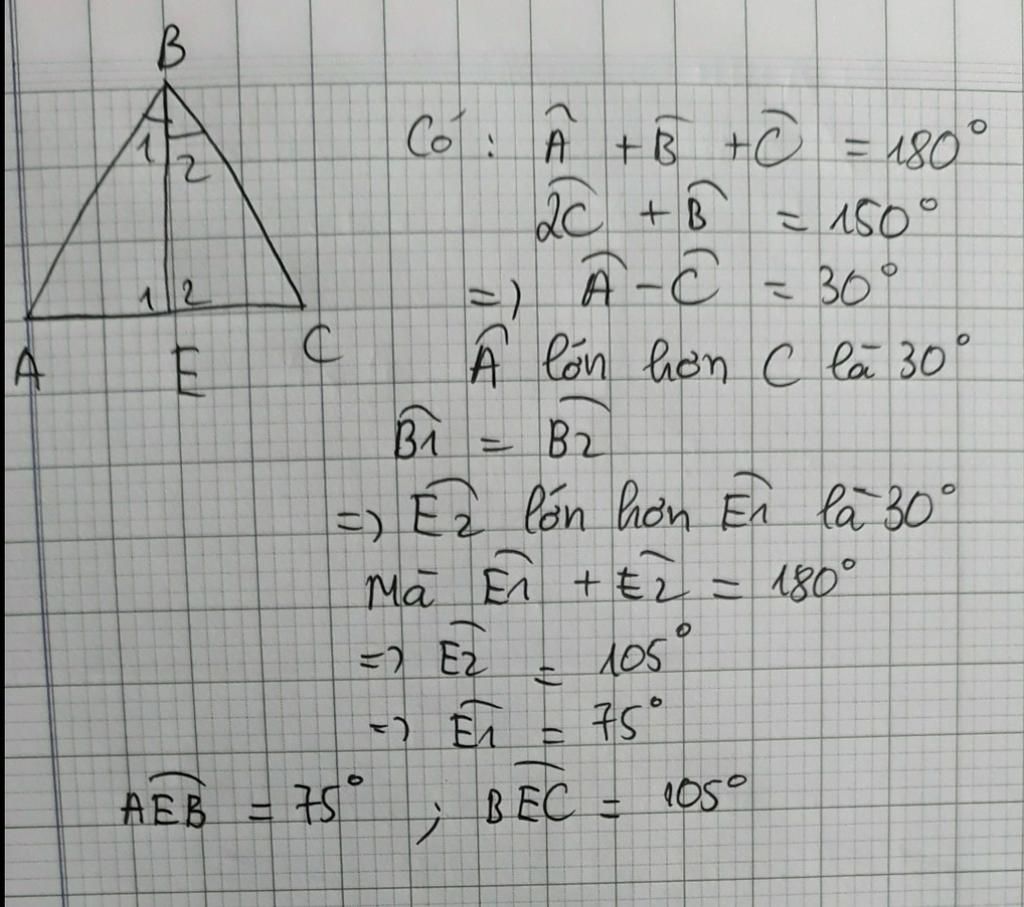 B
1
2
1 2
A E C
Có : Â + B̂ + Ĉ = 180°
2Ĉ + B̂ = 150°
=> Â - Ĉ = 30°
Â lớn hơn C là 30°
B̂1 = B̂2
=> Ê2 lớn hơn Ê1 là 30°
Mà Ê1 + Ê2 = 180°
=> Ê2 = 105°
=> Ê1 = 75°
AÊB = 75° ; BÊC = 105°